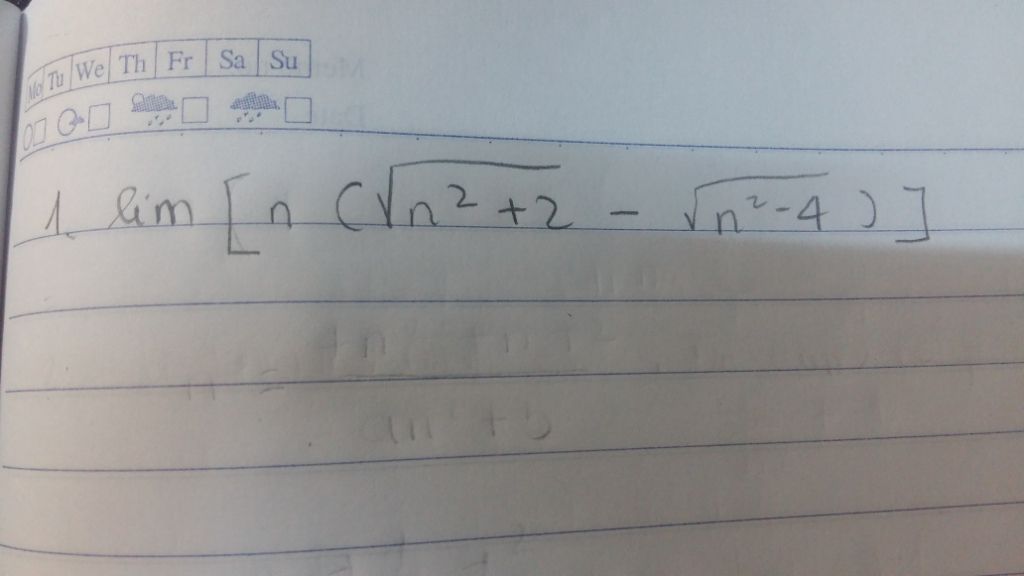 Mo Tu We Th Fr Sa Su
1. lim [ n ( √n²+2 - √n²-4 ) ]